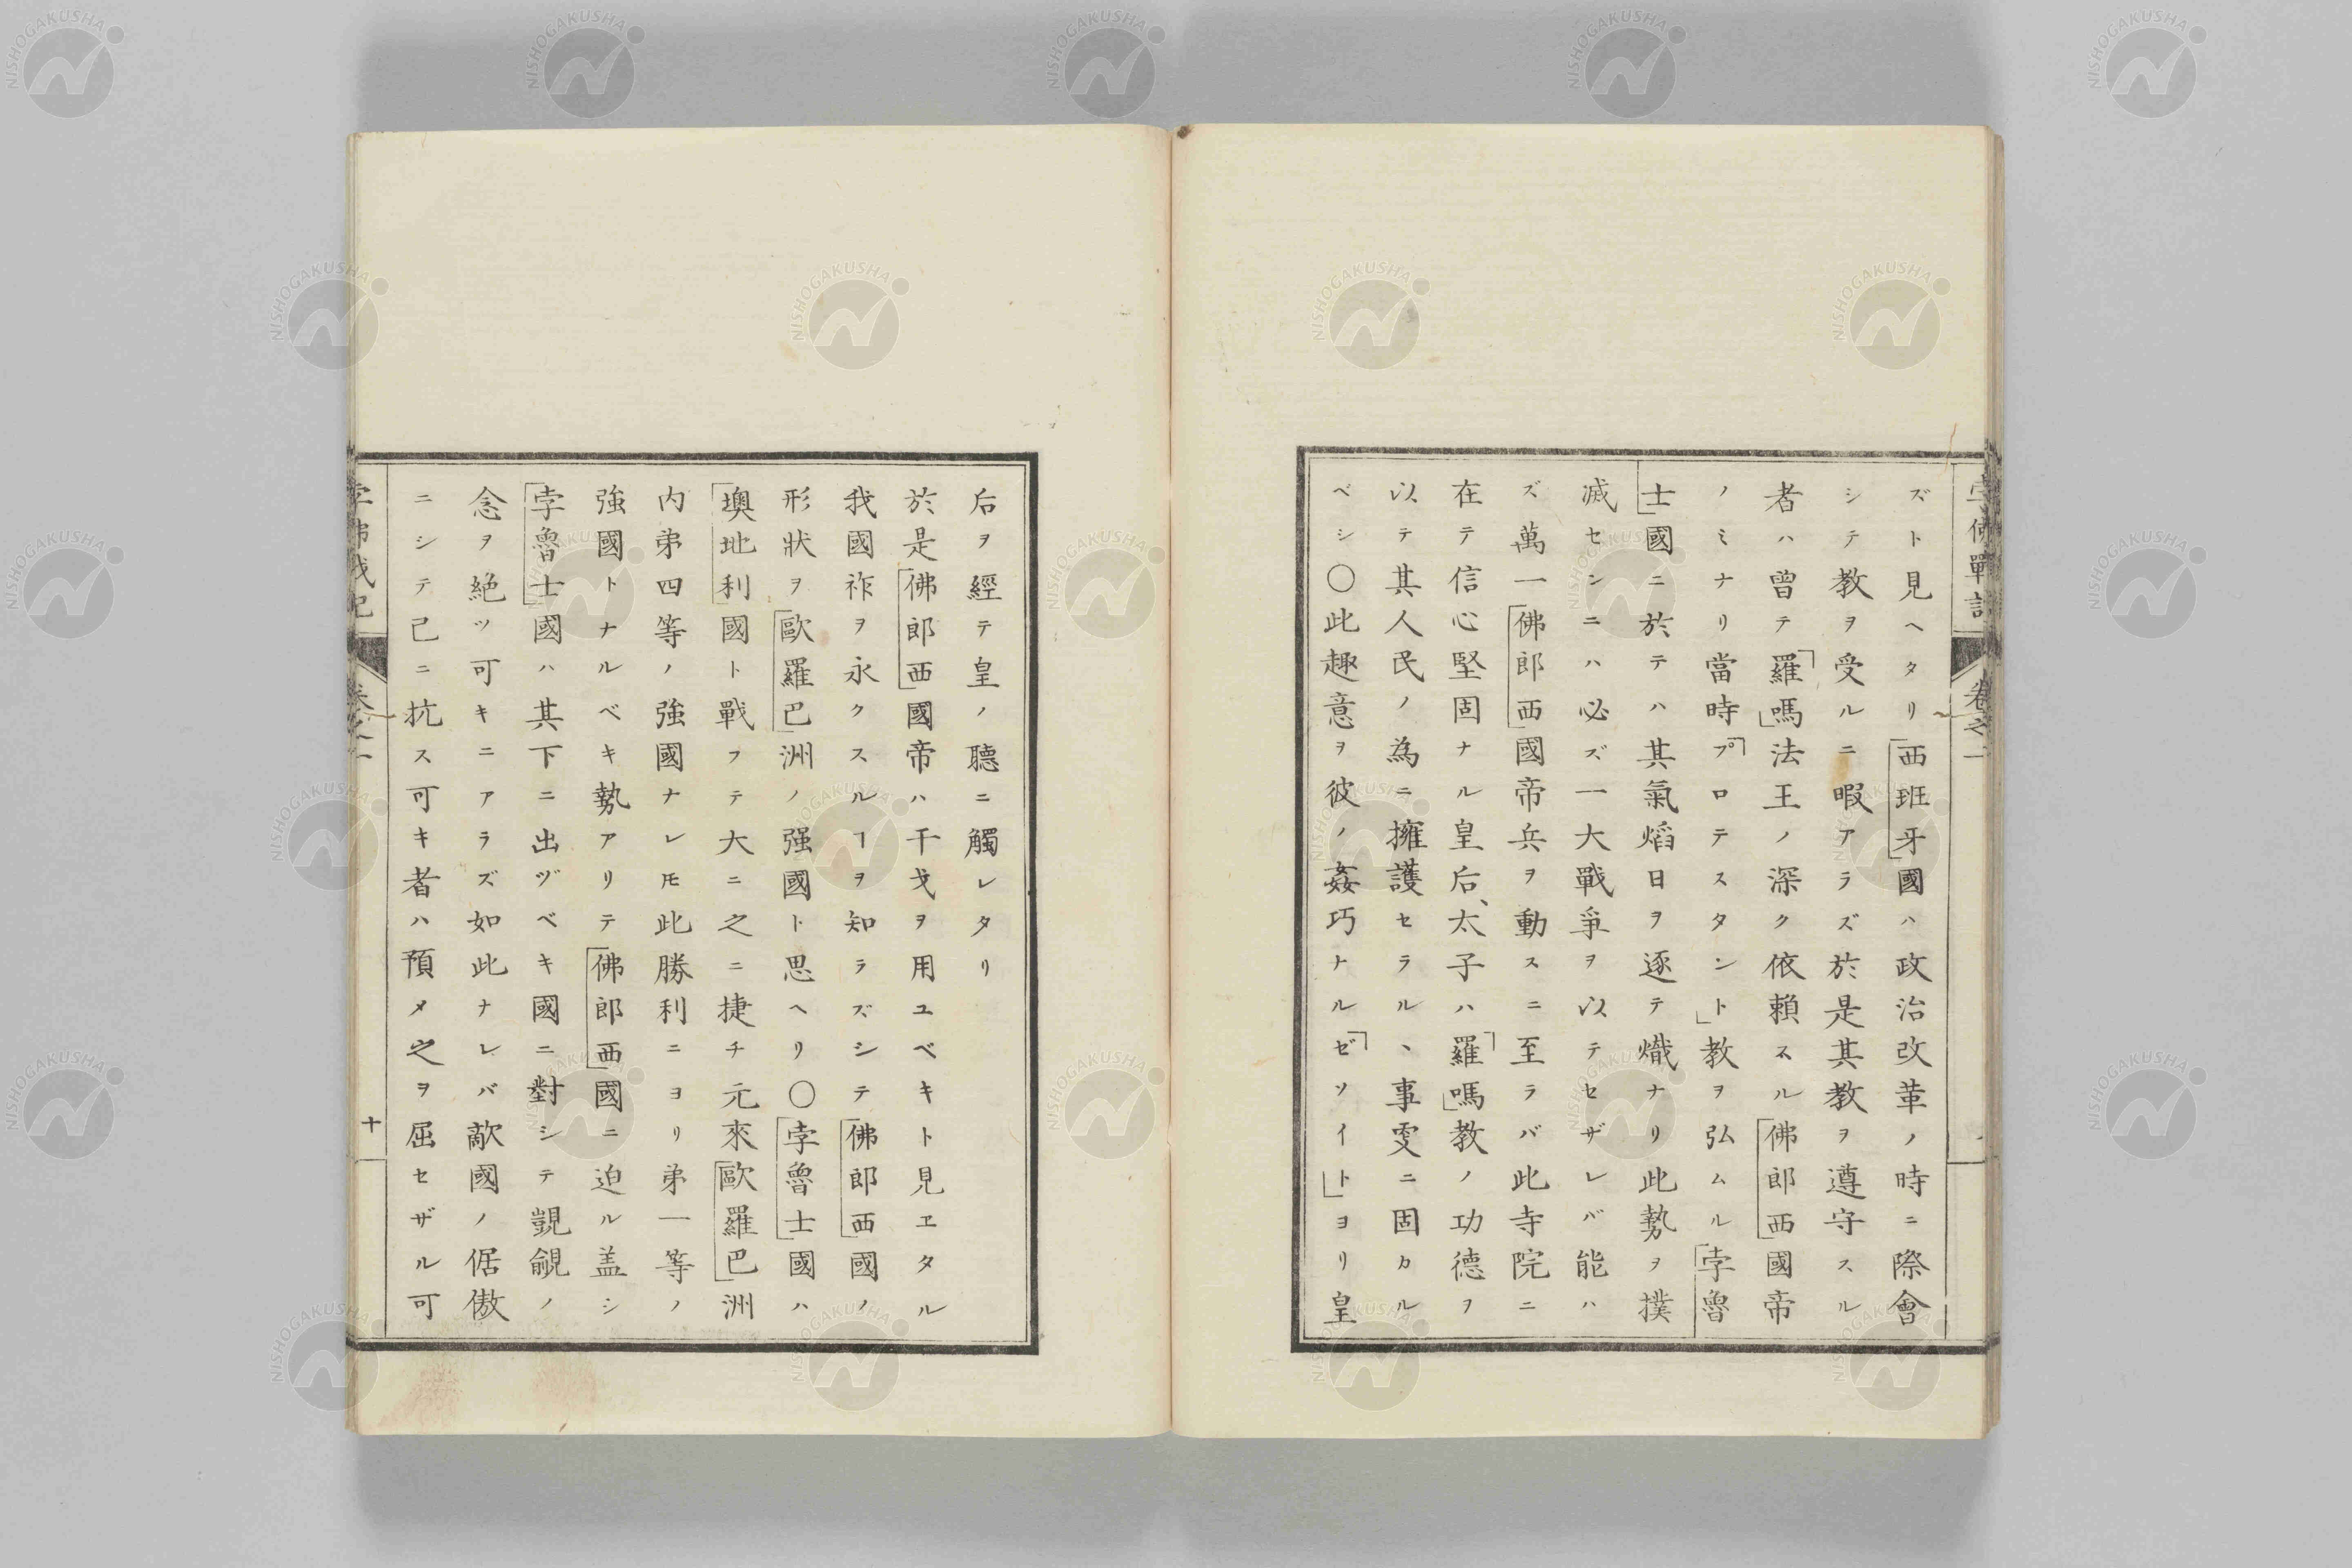 孛佛戰記
卷之一
ズト見ヘタリ西班牙國ハ政治改革ノ時ニ際會
シテ教ヲ受ルニ暇アラズ於是其教ヲ遵守スル
者ハ曽テ「羅嗎」法王ノ深ク依賴スル佛郎西國帝
ノミナリ當時「プロテスタント」教ヲ弘ムル孛魯
士國ニ於テハ其氣熖日ヲ逐テ熾ナリ此勢ヲ撲
滅センニハ必ズ一大戰爭ヲ以テセザレバ能ハ
ズ萬一佛郎西國帝兵ヲ動スニ至ラバ此寺院ニ
在テ信心堅固ナル皇后、太子ハ「羅嗎」教ノ功德ヲ
以テ其人民ノ為ニ擁護セラルヽ事雯ニ固カル
ベシ〇此趣意ヲ彼ノ姦巧ナル「ゼソイト」ヨリ皇
后ヲ經テ皇ノ聽ニ觸レタリ
於是佛郎西國帝ハ干戈ヲ用ユベキト見ヱタル
我國祚ヲ永クスルヿヲ知ラズシテ佛郎西國ノ
形狀ヲ歐羅巴洲ノ强國ト思ヘリ〇孛魯士國ハ
墺地利國ト戰フテ大ニ之ニ捷チ元來歐羅巴洲
内弟四等ノ強國ナレ𪜈此勝利ニヨリ弟一等ノ
強國トナルベキ勢アリテ佛郎西國ニ迫ル盖シ
孛魯士國ハ其下ニ出ヅベキ國ニ對シテ覬覦ノ
念ヲ絶ツ可キニアラズ如此ナレバ敵國ノ倨傲
ニシテ己ニ抗ス可キ者ハ預メ之ヲ屈セザル可
十
NISHOGAKUSHA